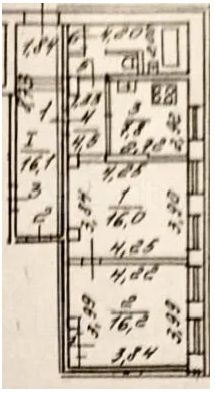 1,84
4,20
6
5
1,33
1
I
16,1
3
2
4
4,6
3
7,8
2,92
4,25
1
16,0
3,84
3,80
4,25
4,22
2
16,2
3,99
3,99
3,84